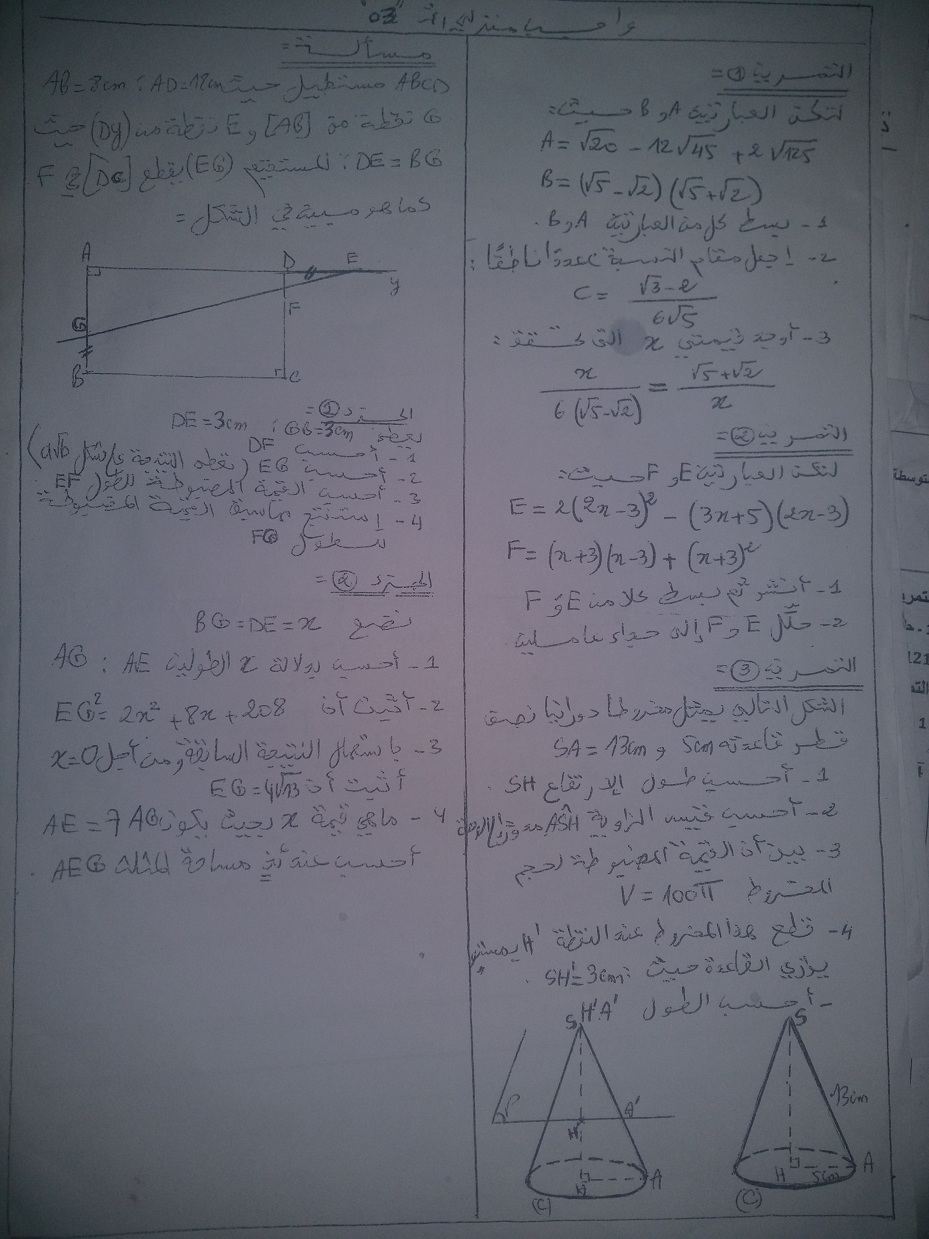 واجب منزلي رقم "03"
التمرين ①=
لتكن العبارتين A و B حيث:
A = √20 − 12√45 + 2√125
B = (√5 − √2)(√5 + √2)
1- بسط كل من العبارتين A و B.
2- إجعل مقام النسبة عددا ناطقا:
C = (√3 − 2) / 6√5
3- أوجد قيمتي x التي تحقق:
x / 6(√5 − √2) = (√5 + √2) / x
التمرين ②=
لتكن العبارتين E و F حيث:
E = 2(2x − 3)² − (3x + 5)(2x − 3)
F = (x + 3)(x − 3) + (x + 3)²
1- أنشر ثم بسط كلا من E و F
2- حلّل E و F إلى جداء عاملين
التمرين ③=
الشكل التالي يمثل مخروط دوراني نصف
قطر قاعدته 5cm و SA = 13cm
1- أحسب طول الإرتفاع SH.
2- أحسب قيس الزاوية AŜH
3- بين أن القيمة المضبوطة لحجم
المخروط V = 100π
4- قطع هذا المخروط عند النقطة H'
يوازي القاعدة حيث: SH' = 3cm.
- أحسب الطول H'A'
S
P
H'
A'
H
A
(C)
S
13cm
H
5cm
A
(C)
مسألة=
ABCD مستطيل حيث AD = 12cm ; AB = 8cm
G نقطة من [AB] و E نقطة من (Dy) حيث
DE = BG ; المستقيم (EG) يقطع [DC] في F
كما هو مبين في الشكل=
A
D
E
y
F
G
B
C
الجزء ①=
نعطي GB = 3cm ; DE = 3cm
1- أحسب DF
2- أحسب EG (نعطي النتيجة على شكل a√b)
3- أحسب القيمة المضبوطة للطول EF
4- إستنتج القيمة المضبوطة
للطول FG
الجزء ②=
نضع BG = DE = x
1- أحسب بدلالة x الطولين AE ; AG
2- أثبت أن EG² = 2x² + 8x + 208
3- باستعمال النتيجة السابقة ومن أجل x = 0
أثبت أن EG = 4√13
4- ماهي قيمة x بحيث يكون AE = 7AG
أحسب عندئذ مساحة المثلث AEG.